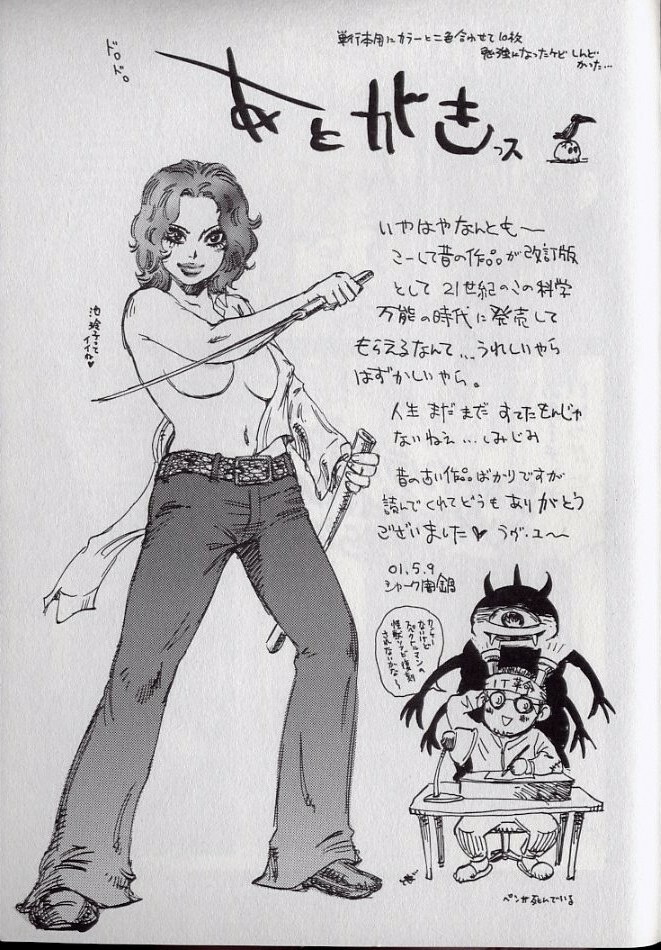 単行本用にカラーと二色合わせて10枚
勉強になったケド しんど
かった…
ドロドロ
あとがきっス
いやはやなんとも〜
こーして昔の作品が改訂版
として 21世紀のこの科学
万能の時代に発売して
もらえるなんて…うれしいやら
はずかしいやら。
人生 まだまだ すてたもんじゃ
ないねぇ…しみじみ
昔の古い作品ばかりですが
読んでくれてどうも ありがとう
ございました♥ うが・ユ〜〜
01.5.9
シャーク
池玲子って
イイね♥
カンケー
ないけど
スペクトルマンの
怪獣ソフビ復刻
されないかな〜
IT革命
ペンが死んでいる